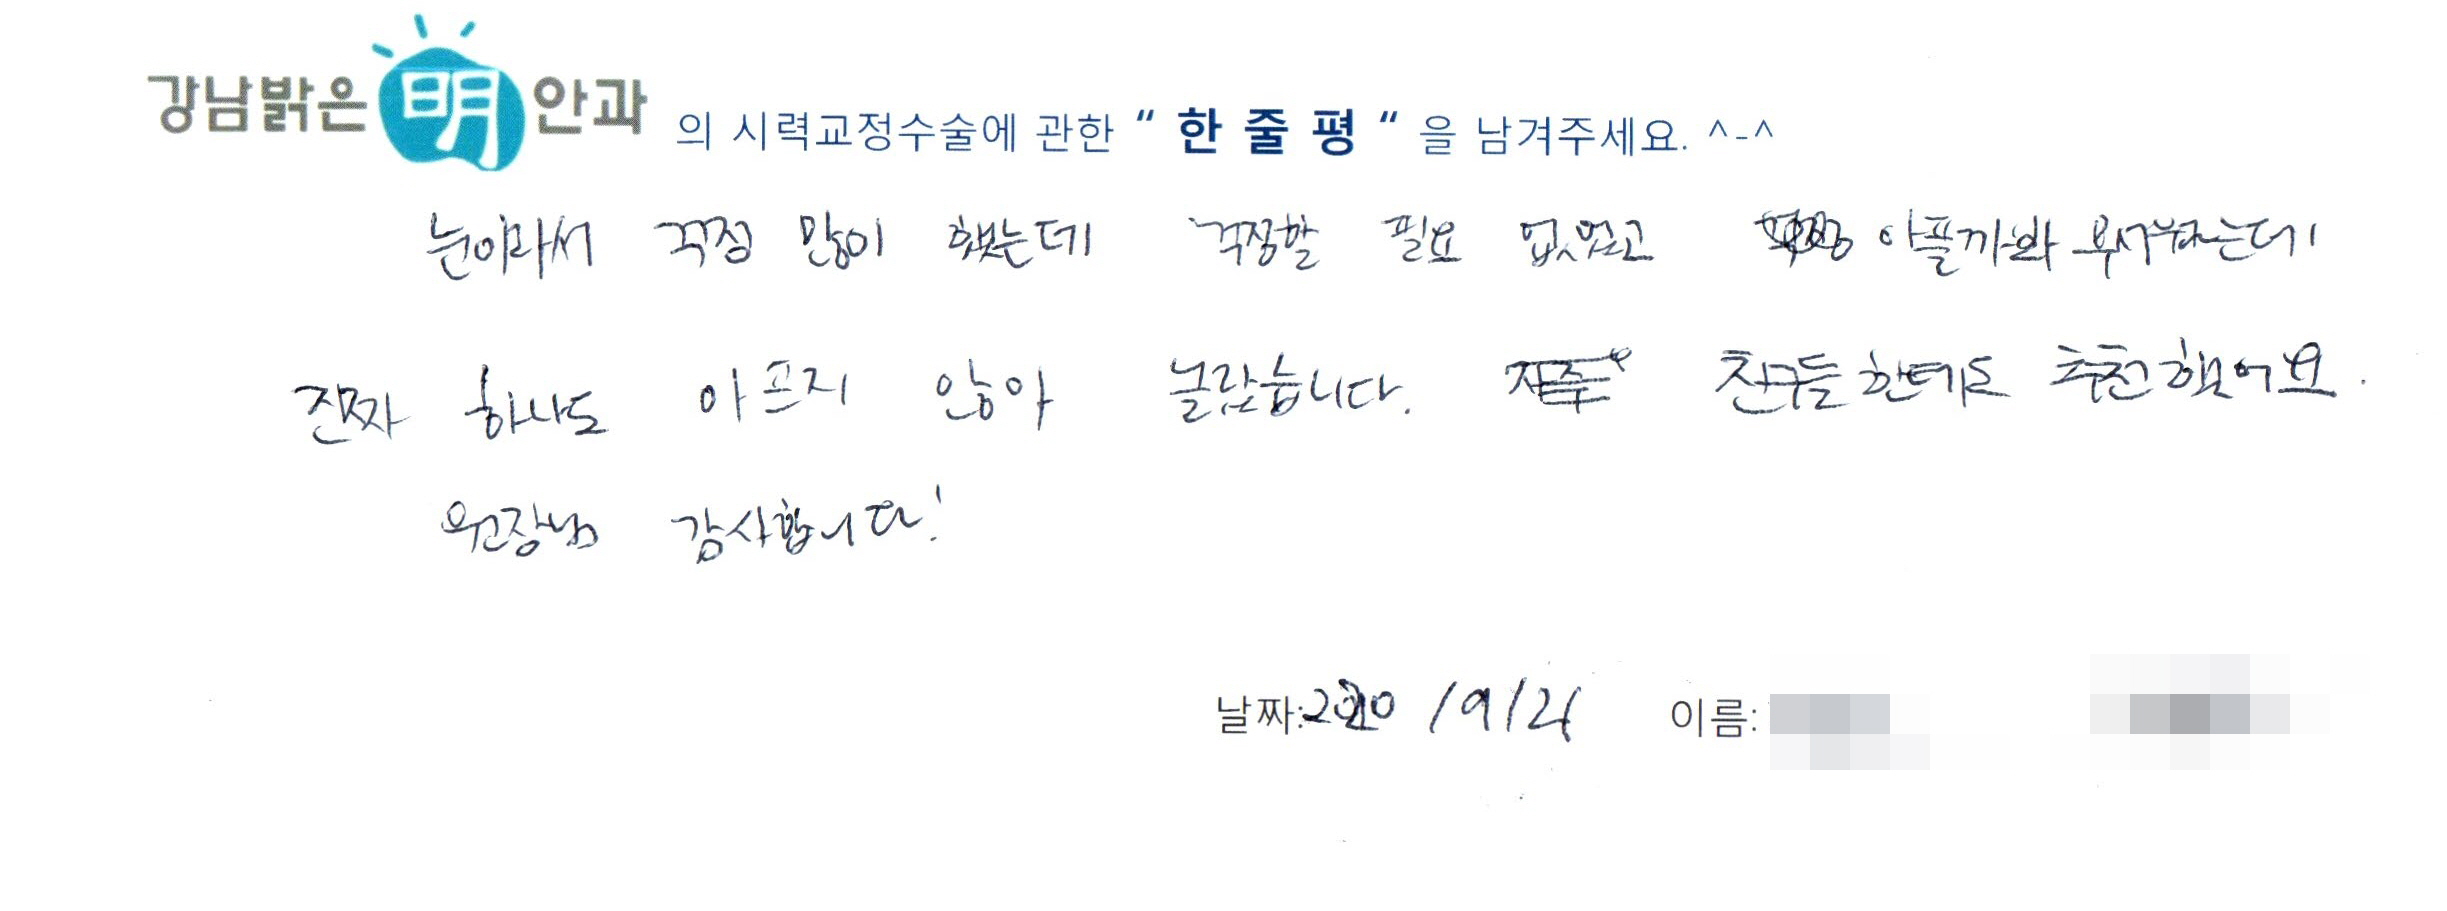 강남밝은 明 안과 의 시력교정수술에 관한 " 한 줄 평 " 을 남겨주세요. ^-^
눈이라서 걱정 많이 했는데 걱정할 필요 없었고 아플까봐 무서웠는데
진짜 하나도 아프지 않아 놀랐습니다. 친구들한테도 추천했어요.
원장님 감사합니다!
날짜: /9/21 이름: